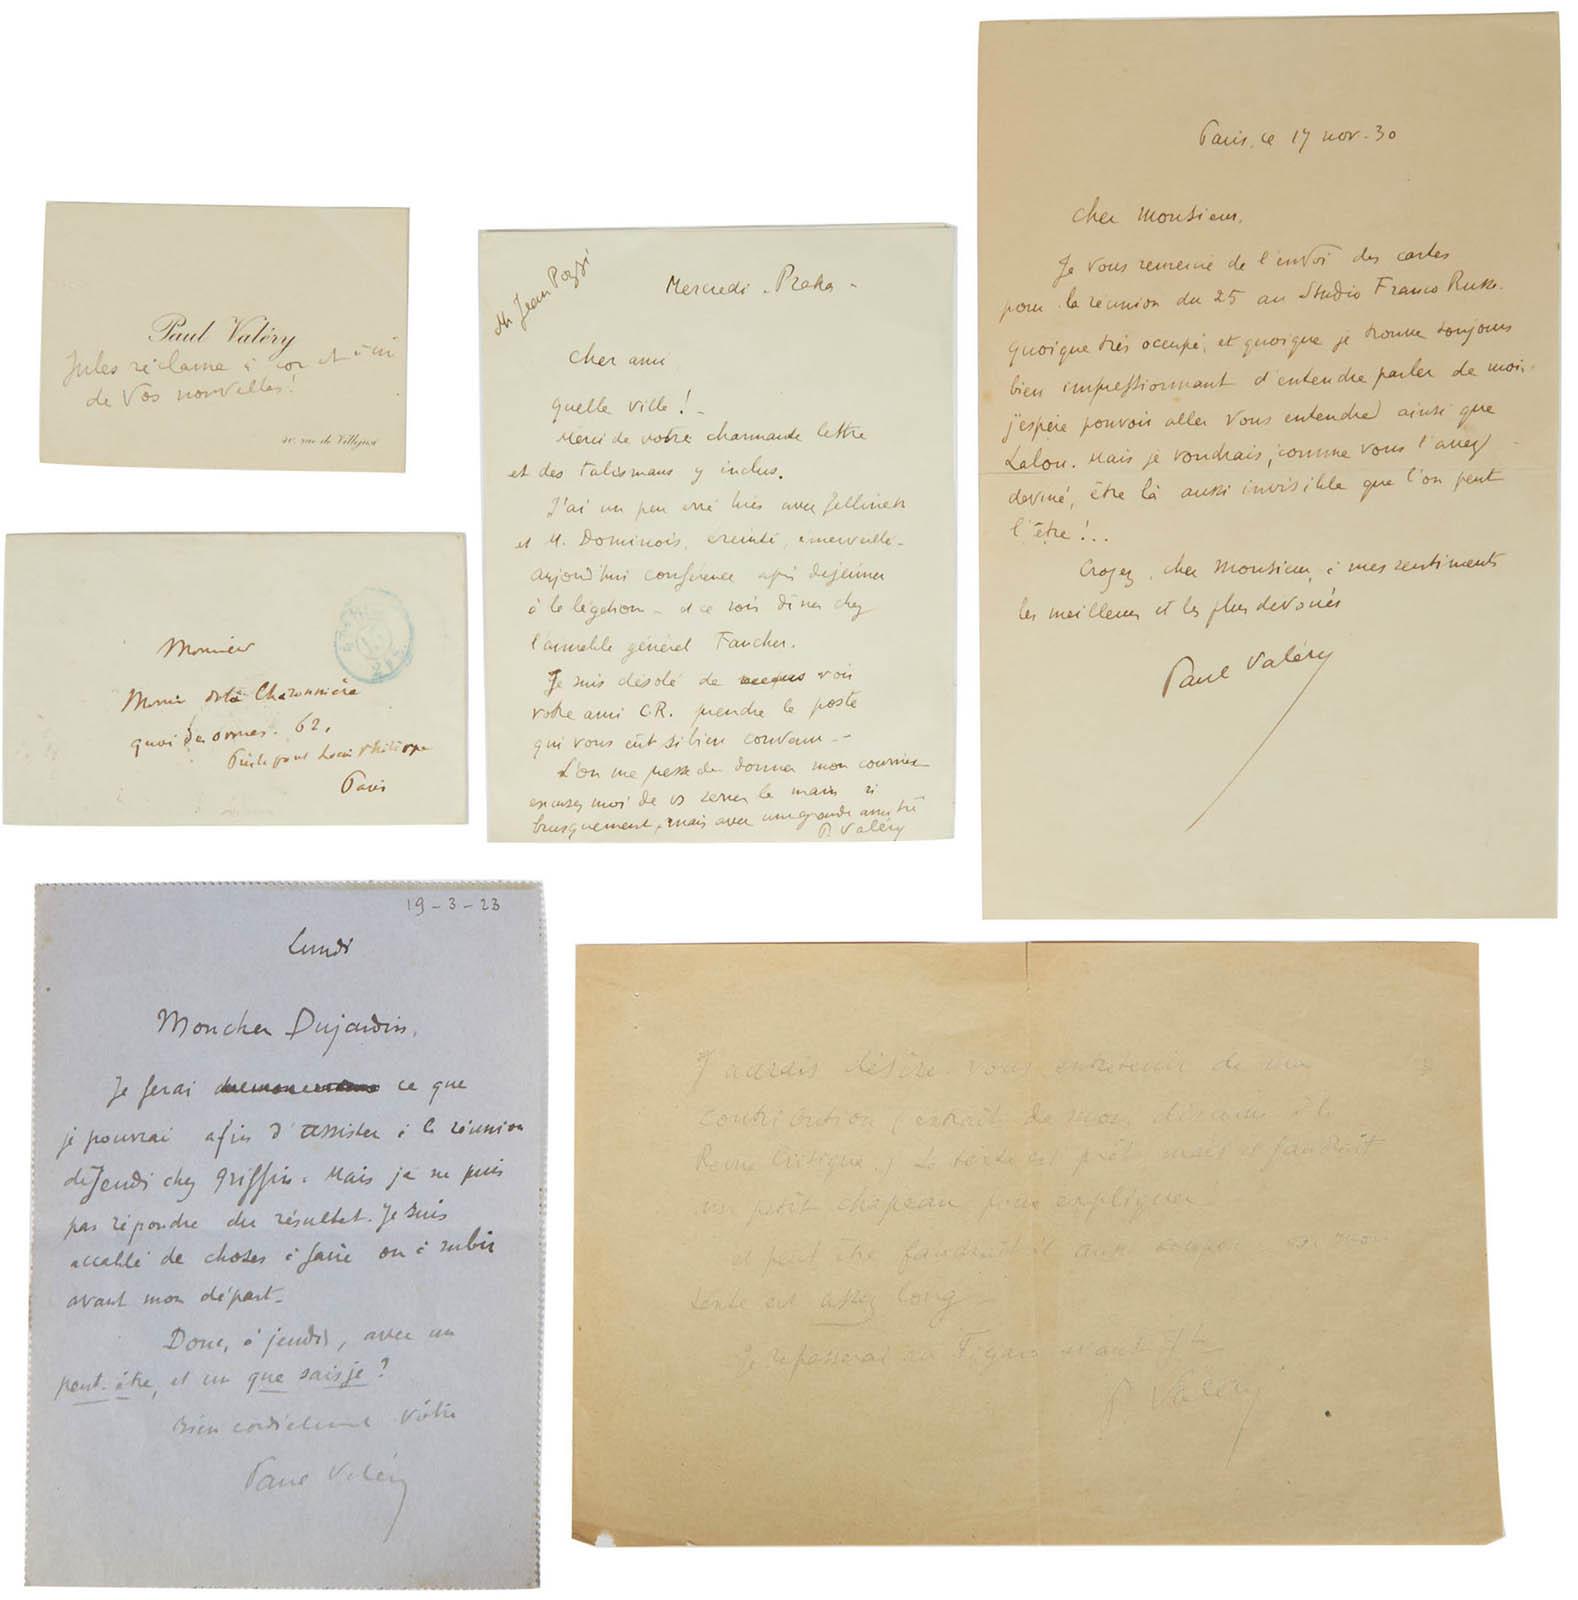 Paul Valéry
Jules réclame à cor et à cri
de vos nouvelles!
40, rue de Villejust
Monsieur
quai des ormes. 62,
Près le pont Louis Philippe
Paris
M. Jean Pozzi
Mercredi - Praha -
Cher ami
quelle ville! -
Merci de votre charmante lettre
et des talismans y inclus.
J'ai un peu erré hier avec Jellinek
et M. Dominois, éreinté, émerveillé -
aujourd'hui conférence après déjeuner
à la légation - et ce soir dîner chez
l'aimable général Faucher.
Je suis désolé de voir
votre ami C.R. prendre le poste
qui vous eût si bien convenu -
L'on me presse de donner mon courrier
excusez moi de vs serrer la main si
brusquement, mais avec une grande amitié
P. Valéry
Paris, ce 17 nov. 30
Cher Monsieur,
Je vous remercie de l'envoi des cartes
pour la réunion du 25 au Studio Franco Russe.
Quoique très occupé, et quoique je trouve toujours
bien impressionnant d'entendre parler de moi,
j'espère pouvoir aller vous entendre ainsi que
Lalou. Mais je voudrais, comme vous l'avez
deviné, être là aussi invisible que l'on peut
l'être!..
Croyez, cher Monsieur, à mes sentiments
les meilleurs et les plus dévoués
Paul Valéry
19-3-23
Lundi
Mon cher Dujardin,
Je ferai ce que
je pourrai afin d'assister à la réunion
de Jeudi chez Griffin. Mais je ne puis
pas répondre du résultat. Je suis
accablé de choses à faire ou à subir
avant mon départ -
Donc, à jeudi, avec un
peut-être, et un que sais je?
Bien cordialement vôtre
Paul Valéry
J'aurais désiré vous entretenir de ma
contribution (extrait de mon discours à la
Revue Critique.) Le texte est prêt mais il faudrait
un petit chapeau pour expliquer
et peut être faudrait-il aussi couper mon
texte est assez long -
Je repasserai au Figaro avant 7h
P Valéry